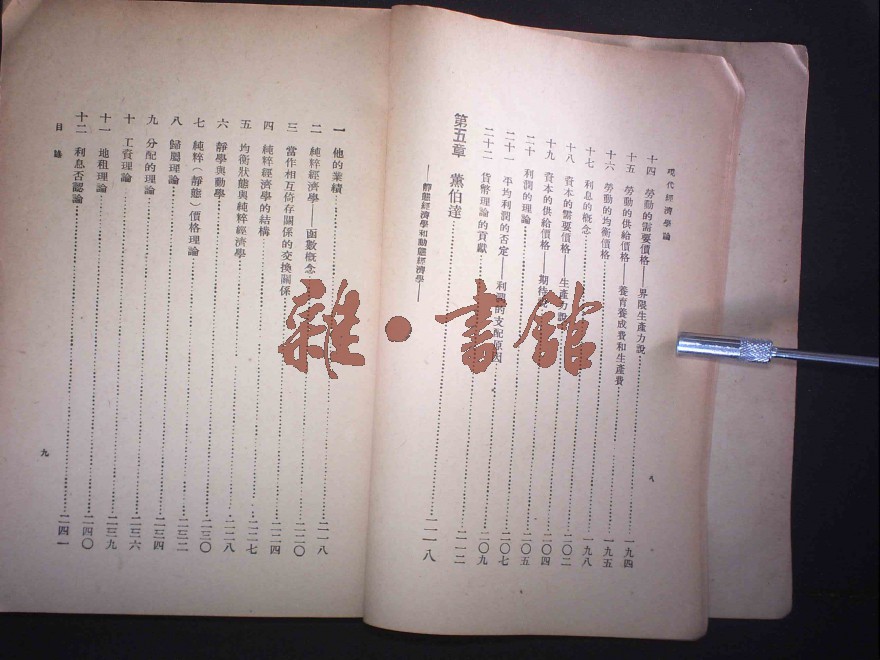 現代經濟學論
十四 勞動的需要價格——界限生產力說……一九四
十五 勞動的供給價格——養育養成費和生產費……一九五
十六 勞動的均衡價格……一九八
十七 利息的概念……二〇二
十八 資本的需要價格——生產力說……二〇四
十九 資本的供給價格——期待……二〇五
二十 利潤的理論……二〇七
二十一 平均利潤的否定——利潤的支配原因……二〇九
二十二 貨幣理論的貢獻……二一二
第五章 熊伯達……二一八
——靜態經濟學和動態經濟學——
八
一 他的業績……二一八
二 純粹經濟學——函數概念……二二〇
三 當作相互倚存關係的交換關係……二二四
四 純粹經濟學的結構……二二七
五 均衡狀態與純粹經濟學……二二八
六 靜學與動學……二三〇
七 純粹（靜態）價格理論……二三二
八 歸屬理論……二三四
九 分配的理論……二三六
十 工資理論……二三九
十一 地租理論……二四〇
十二 利息否認論……二四一
目錄
九
雜·書館